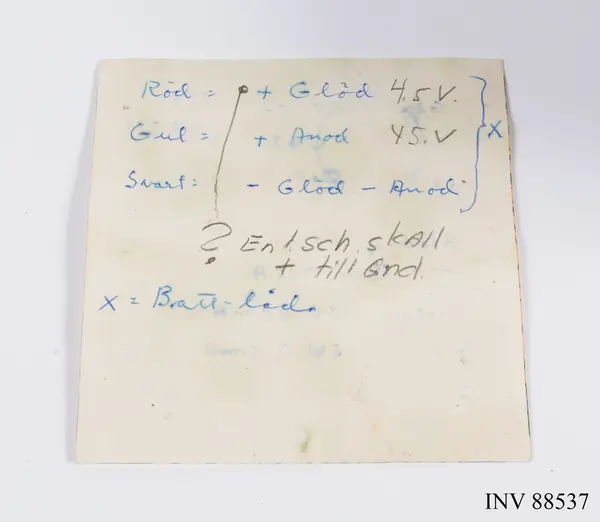 Röd = + Glöd 4.5 V.
Gul = + Anod 45. V
Svart = - Glöd - Anod
X
? Enl. sch. skall
+ till Gnd.
X = Batt-låda
INV 88537